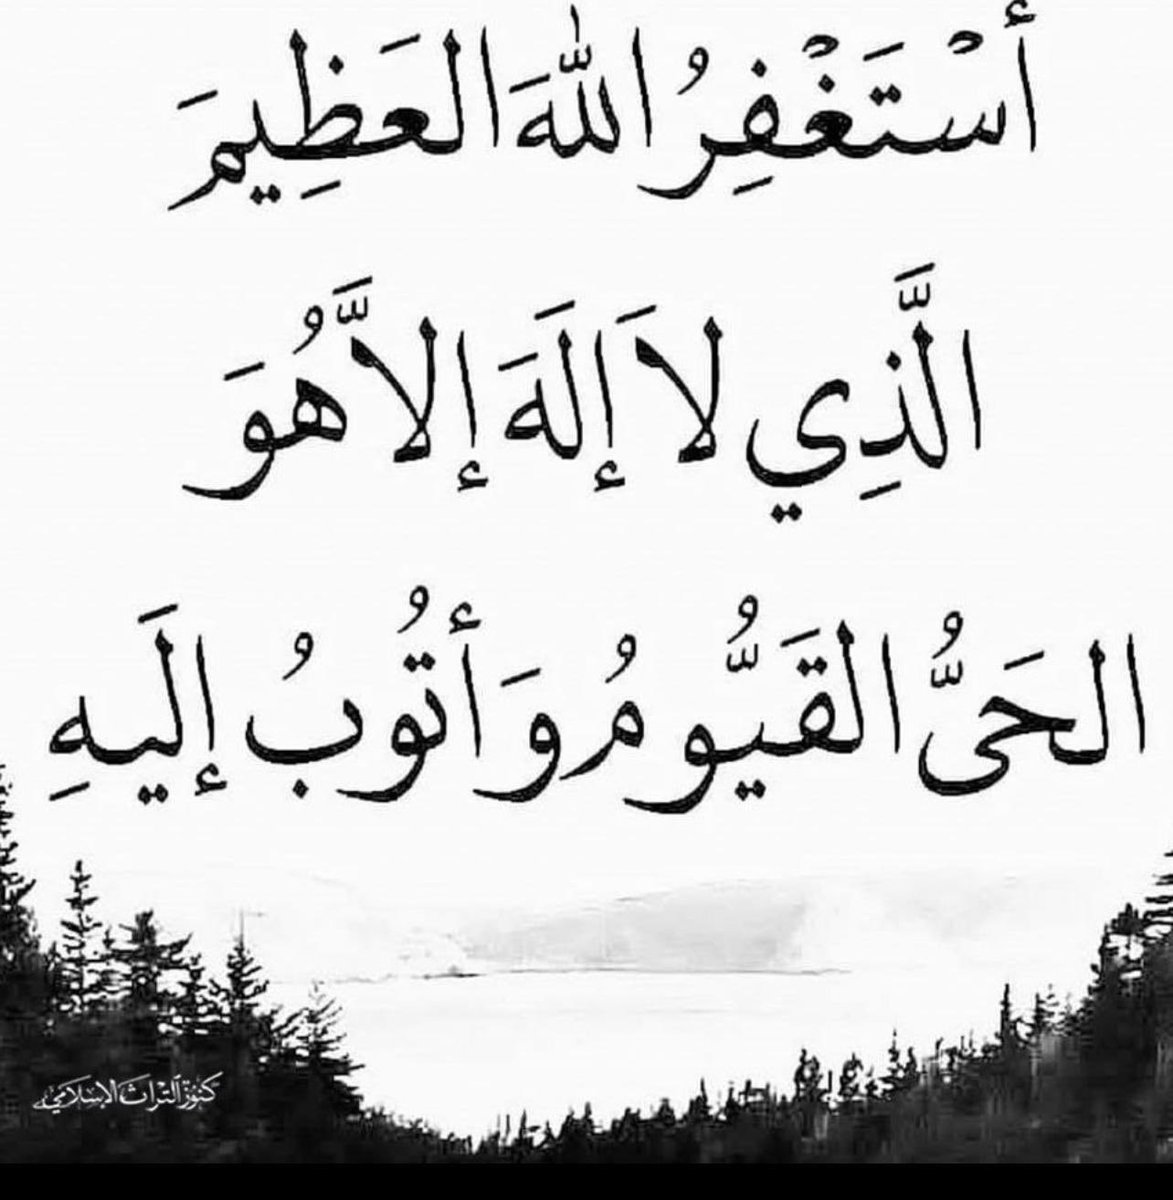 أَسْتَغْفِرُ اللّٰهَ الْعَظِيمَ
الَّذِي لاَ إِلَهَ إِلاَّ هُوَ
الحَىُّ القَيُّومُ وَأَتُوبُ إِلَيهِ
كنوز التراث الإسلامي